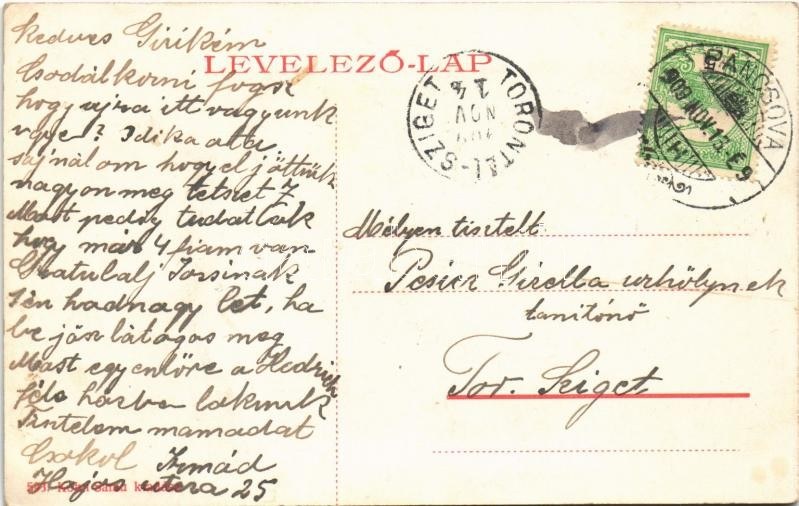 LEVELEZŐ-LAP
kedves Girikém
Csodálkozni fogsz
hogy ujra itt vagyunk
ugye? Idika óta
sajnálom hogy eljöttünk
nagyon meg tetszet
Most pedig tudatlak
hogy már 4 fiam van
Gratulalj Jossinak
hadnagy let, ha
be jösz látogas meg
Most egyenlőre a Hedrich
féle házba lakunk
Tintelem mamadat
Csokol Irmád
Hajos utcza 25
TORONTÁL-SZIGET
NOV
PANCSOVA
909 NOV. 13. E9
Mélyen tisztelt
Pesier Girella urhölynek
tanitónő
Tor. Sziget